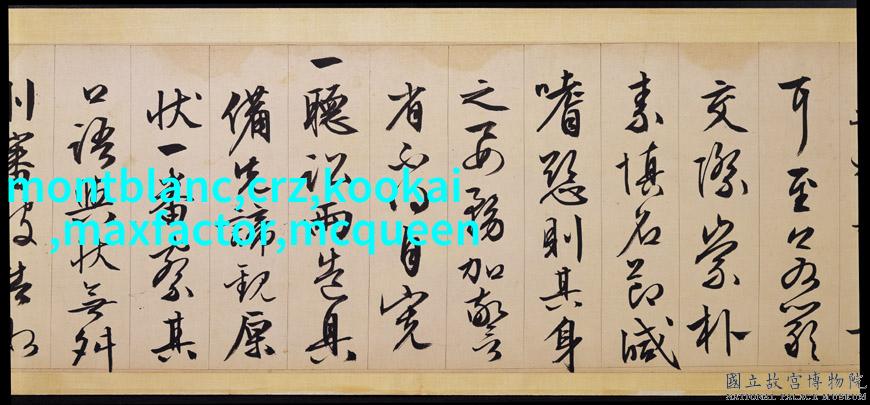 耳至公必嚴
交際崇朴
素慎名節減
嗜慾則其身
之要務加警
省不得自寬
一聽訟兩造具
備先諦觀原
狀一當察其
口語與狀無舛
montblanc,crz,kookai
,maxfactor,mcqueen
國立故宮博物院
NATIONAL PALACE MUSEUM